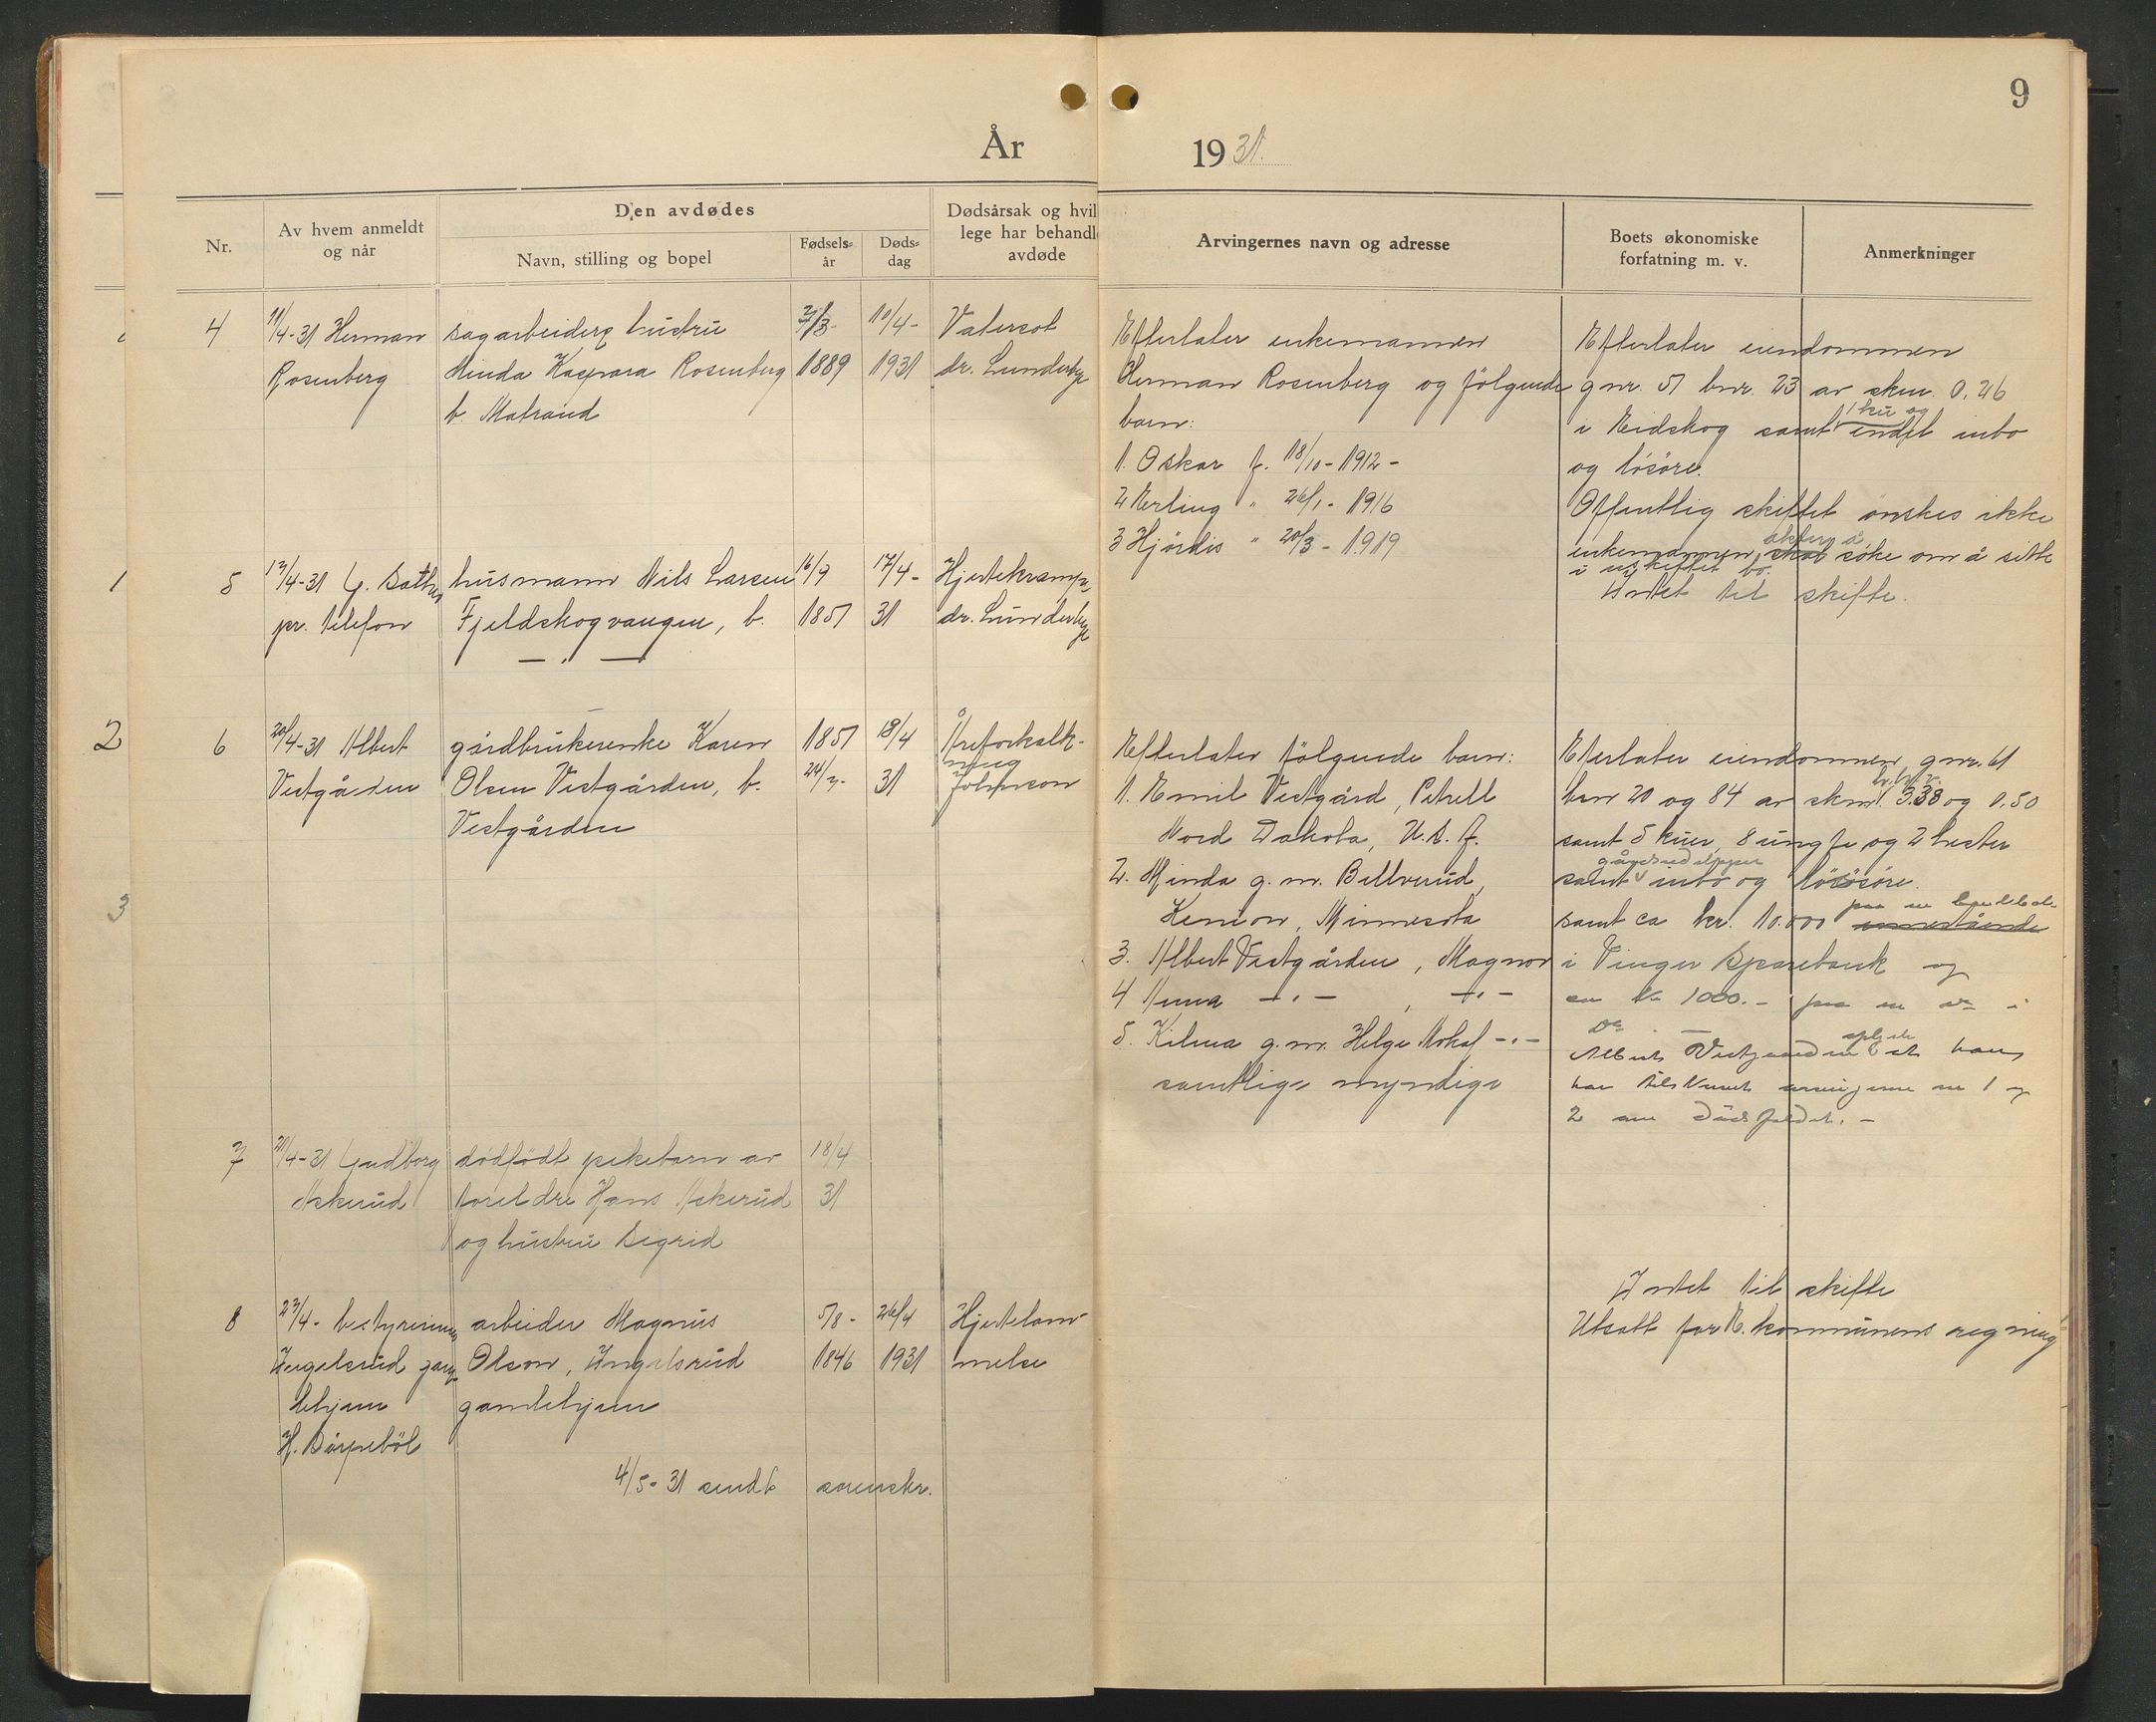 9
År 1931.
Nr.
Av hvem anmeldt og når
Den avdødes
Navn, stilling og bopel
Fødsels-år
Døds-dag
Dødsårsak og hvil
lege har behandl
avdøde
Arvingernes navn og adresse
Boets økonomiske forfatning m. v.
Anmerkninger
4
11/4-31 Herman
Rosenberg
sagarbeiders hustru
Minda Kaspara Rosenberg
b. Matrand
1889
10/4-
1931
Vatersot
dr. Lunderbye
Efterlater enkemannen
Herman Rosenberg og følgende
barn:
1. Oskar f. 18/10-1912-
2 Erling " 26/1-1916
3 Hjördis " 20/3-1919
Efterlater eiendommen
gnr. 51 bnr. 23 av skm. 0,26
i Eidskog samt 1 ku og indbo
og lösöre.
Offentlig skiftet önskes ikke
enkemannen akter å söke om å sitte
i uskiftet bo.
5
pr. telefon
husmann Nils Larsen
Fjeldskogvangen, b.
— " —
16/9
1851
17/4-
31
Hjertekrampe
dr. Lunderbye
Intet til skifte.
6
20/4-31 Albert
Vestgården
gårdbrukerenke Karen
Olsen Vestgården, b.
Vestgården
1851
18/4
31
Åreforkalk-
ning
Johnson
Efterlater følgende barn:
1. Emil Vestgård, Petrell
Nord Dakota, U.S.A.
2. Minda g.m. Bellverud,
Kenion, Minnesota
3. Albert Vestgården, Magnor
4 Anna —"— , —"—
5. Kilma g.m. Helge —"—
samtlige myndige
Efterlater eiendommen, gnr. 41
bnr 20 og 84 av skm. 3.38 og 0.50
samt 5 kuer, 8 ungfe og 2 hester
samt gårdsredskaper inbo og lösöre.
samt ca kr. 10.000 innestående
i Vinger Sparebank og
ca kr 1000.-
Albert Vestgaarden oplyste at han
har tilskrevet arvingerne nr 1 og
2 om dödsfaldet. -
7
20/4-31 Gudborg
Askerud
dødfödt pikebarn av
foreldre Hans Askerud
og hustru Sigrid
18/4
31
8
27/4- bestyrerinne
Ingelsrud gam-
lehjem
arbeider Magnus
Olson, Ingelsrud
gamlehjem
5/8-
1846
26/4
1931
Hjertelam-
melse
Intet til skifte
Utsatt for E. kommunens regning
4/5-31 sendt sorenskr.
1
2
3